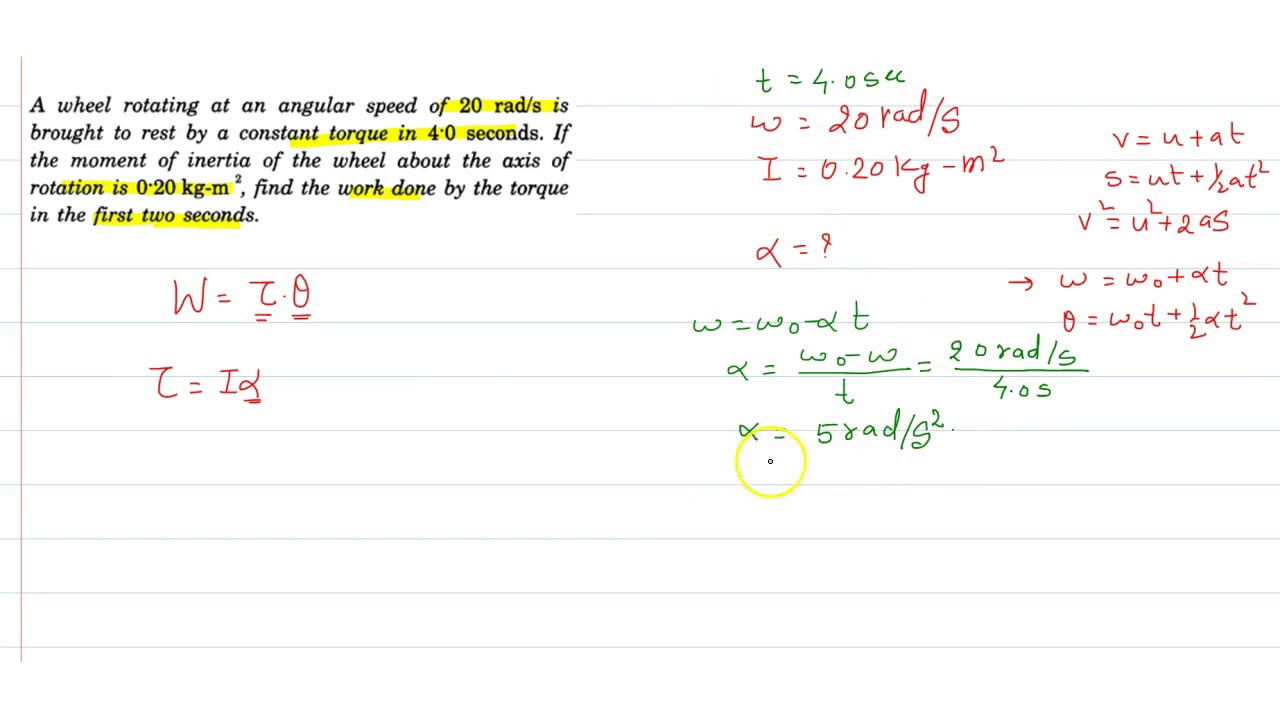 A wheel rotating at an angular speed of 20 rad/s is
brought to rest by a constant torque in 4·0 seconds. If
the moment of inertia of the wheel about the axis of
rotation is 0·20 kg-m², find the work done by the torque
in the first two seconds.
W = τ·θ
τ = Iα
t = 4.0 sec
ω = 20 rad/s
I = 0.20 kg-m²
α = ?
ω = ω₀ - αt
α = (ω₀ - ω)/t = 20 rad/s / 4.0s
α = 5 rad/s².
v = u + at
s = ut + ½at²
v² = u² + 2as
→ ω = ω₀ + αt
θ = ω₀t + ½αt²